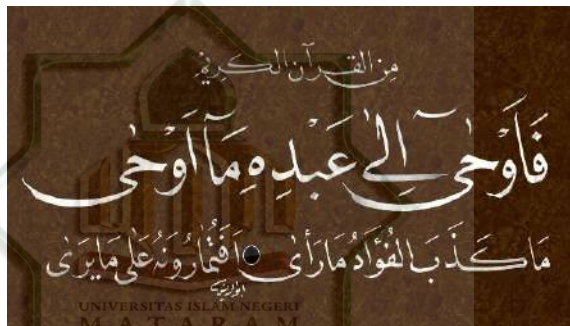 مِنَ القُرآنِ الكَرِيمِ
فَأَوْحَىٰٓ إِلَىٰ عَبْدِهِ مَآ أَوْحَىٰ
مَا كَذَبَ الفُؤَادُ مَا رَأَىٰ أَفَتُمَارُونَهُ عَلَىٰ مَا يَرَىٰ
UNIVERSITAS ISLAM NEGERI
MATARAM